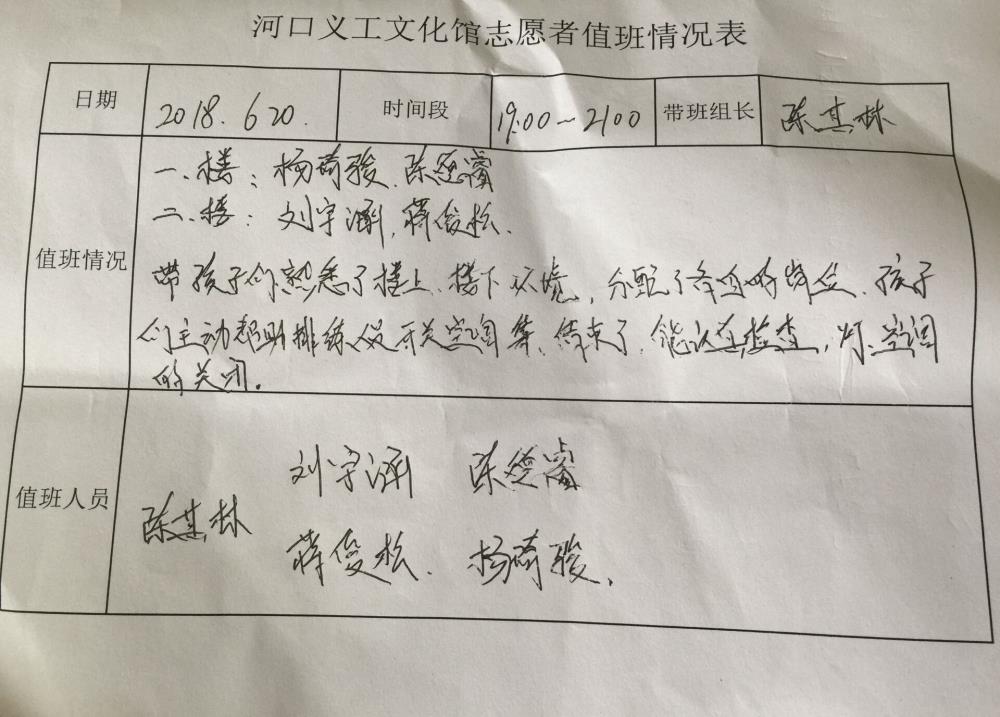 河口义工文化馆志愿者值班情况表
日期 2018. 6 20. 时间段 19:00~2100 带班组长 陈其林
值班情况
一.楼：杨琦骏.陈思睿
二.楼：刘宇涵,蒋俊松.
带孩子们熟悉了楼上、楼下环境，分配了各自的岗位、孩子
们主动帮助排练人员开关空调等、结束了、能认真检查，灯.空调
的关闭。
值班人员
刘宇涵 陈思睿
陈其林
蒋俊松. 杨琦骏.